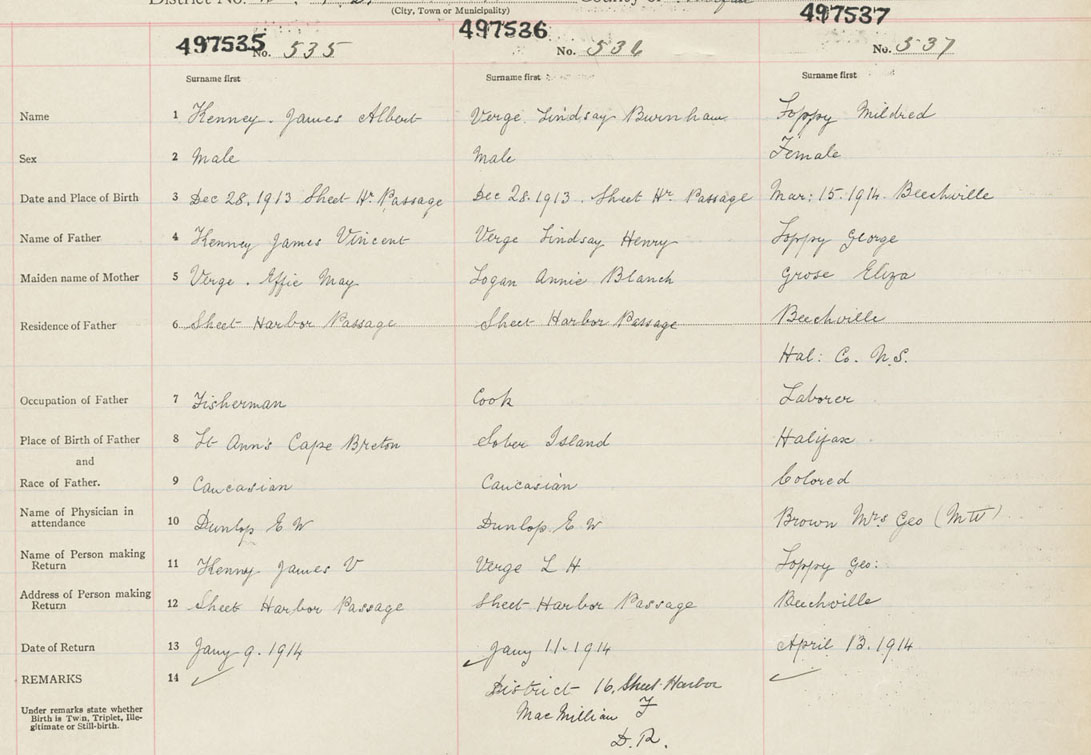 District No.
County of
(City, Town or Municipality)
497535 No. 535
497536 No. 536
497537 No. 537
Surname first Surname first Surname first
Name 1 Kenney. James Albert Verge Lindsay Burnham Mildred
Sex 2 Male Male Female
Date and Place of Birth 3 Dec 28, 1913 Sheet Hr Passage Dec 28. 1913. Sheet Hr Passage Mar: 15. 1914. Beechville
Name of Father 4 Kenney James Vincent Verge Lindsay Henry George
Maiden name of Mother 5 Verge. Effie May Logan Annie Blanch Grose Eliza
Residence of Father 6 Sheet Harbor Passage Sheet Harbor Passage Beechville
Hal: Co. N.S.
Occupation of Father 7 Fisherman Cook Laborer
Place of Birth of Father 8 St Ann's Cape Breton Sober Island Halifax
and
Race of Father. 9 Caucasian Caucasian Colored
Name of Physician in
attendance 10 Dunlop E W Dunlop E W Brown Mrs Geo (MW)
Name of Person making
Return 11 Kenny James V Verge L H Geo:
Address of Person making
Return 12 Sheet Harbor Passage Sheet Harbor Passage Beechville
Date of Return 13 Jany 9. 1914 Jany 11-1914 April 13. 1914
REMARKS 14 District 16, Sheet Harbor
Under remarks state whether
Birth is Twin, Triplet, Ille-
gitimate or Still-birth.
MacMillian F
D.R.